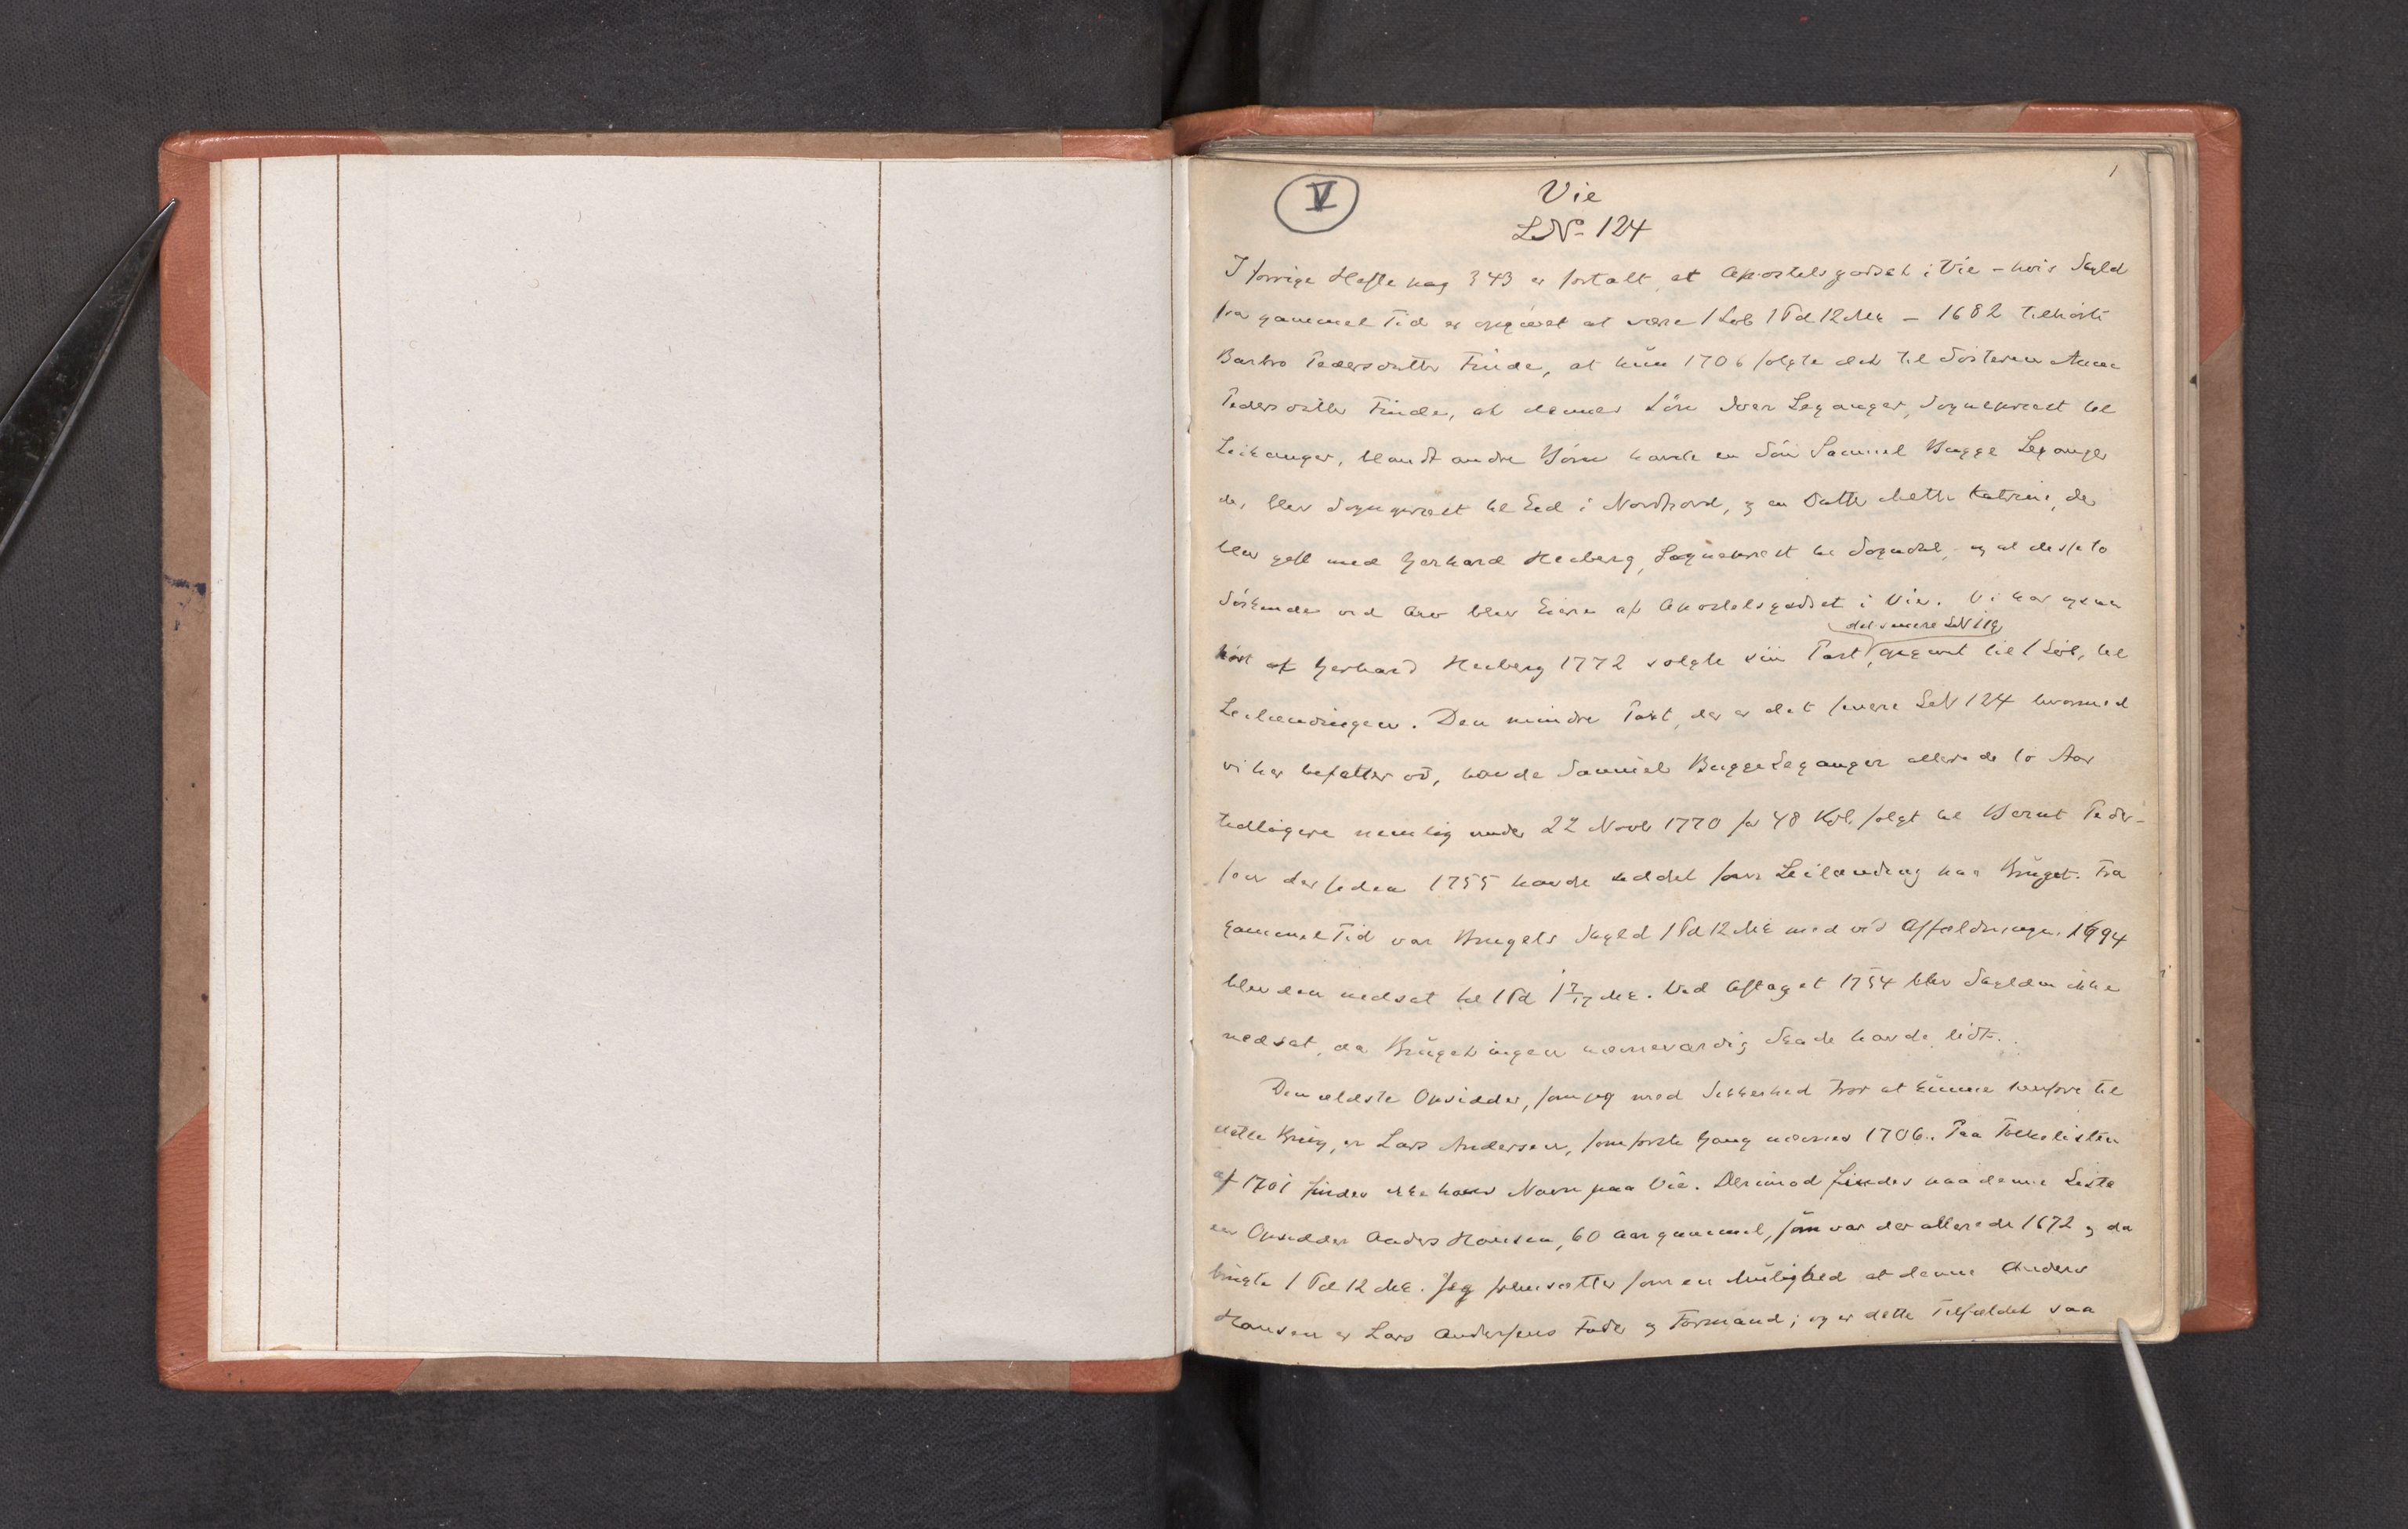 1
V
Vie
LN° 124
I forrige Hefte pag 343 er fortalt, at Apostelsgodset i Vie - hvis Skyld
fra gammel Tid er opgivet at være 1 Løb 1 Pd 12 Mk - 1682 tilhørte
Barbro Pedersdatter Finde, at hun 1706 solgte det til Søsteren Anna
Pedersdatter Finde, at dennes Søn Iver Leganger, Sogneprest til
Leikanger, blandt andre Børn havde en Søn Samuel Bugge Leganger
der blev Sogneprest til Eid i Nordfjord, og en Datter Mette Katrine, der
blev gift med Gerhard Heiberg, Sogneprest til Sogndal, og at disse to
Søskende ved Arv blev Eiere af Apostelsgodset i Vie. Vi har ogsaa
det senere LN 119
hørt at Gerhard Heiberg 1772 solgte sin Part, opgivet til 1 Løb, til
Leilændingen. Den mindre Part, der er det senere LN 124 hvormed
vi her befatter os, havde Samuel Bugge Leganger allerede to Aar
tidligere nemlig under 22 Novb 1770 for 48 Rdl. solgt til Bernt Peder-
sen der siden 1755 havde siddet som Leilænding paa Bruget. Fra
gammel Tid var Brugets Skyld 1 Pd 12 Mk med ved Affældningen 1694
blev den nedsat til 1 Pd Mk. Ved Aftaget 1754 blev Skylden ikke
nedsat, da Bruget ingen nævneværdig Skade havde lidt.
Den ældste Opsidder, som jeg med Sikkerhed tror at kunne henføre til
dette Brug, er Lars Andersen, som første Gang nævnes 1706. Paa Folkelisten
af 1701 findes ikke hans Navn paa Vie. Derimod findes paa denne Liste
en Opsidder Anders Hansen, 60 Aar gammel, som var der allerede 1672 og da
brugte 1 Pd 12 Mk. Jeg forudsætter som en Mulighed at denne Anders
Hansen er Lars Andersens Fader og Formand; og er dette Tilfældet saa